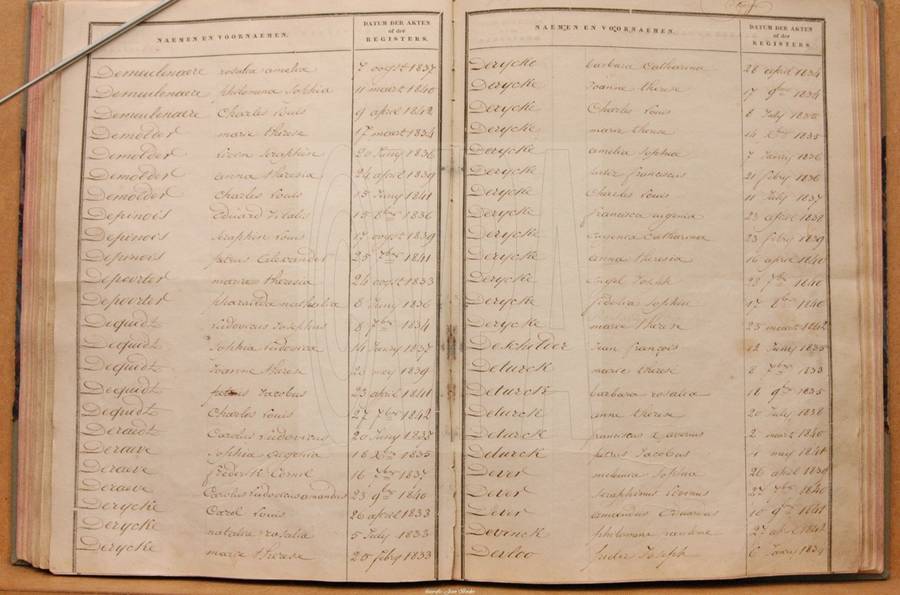 NAEMEN EN VOORNAEMEN.
DATUM DER AKTEN
of der
REGISTERS.
Demeulenaere rosalia amelia 7 oogst 1837
Demeulenaere philomena Sophia 11 maart 1840
Demeulenaere Charles Louis 9 april 1842
Demolder marie therese 17 maart 1834
Demolder Seraphin 20 Juny 1836
Demolder anna theresia 24 april 1839
Demolder Charles Louis 15 Juny 1841
Depinois Eduard 15 8bre 1836
Depinois Seraphin Louis 17 oogst 1839
Depinois petrus Alexander 25 7bre 1841
Depoorter marie theresia 24 oogst 1833
Depoorter pharailda nathalia 8 Juny 1836
Dequidt Ludovicus Josephus 8 7bre 1834
Dequidt Sophia Ludovica 14 January 1837
Dequidt Joanne therese 23 mey 1839
Dequidt petrus Jacobus 23 april 1841
Dequidt Charles Louis 27 7bre 1842
Deraedt Carolus Ludovicus 20 Juny 1837
Deraeve Sophia Eugenia 16 Xbre 1835
Deraeve frederik Cornel 16 7bre 1837
Deraeve Carolus Ludovicus amandus 23 9bre 1840
Derycke Carol Louis 26 april 1833
Derycke natalia rosalia 5 July 1833
Derycke marie therese 20 febry 1833
NAEMEN EN VOORNAEMEN.
DATUM DER AKTEN
of der
REGISTERS.
Derycke barbara Catharina 28 april 1834
Derycke Joanna therese 17 9bre 1834
Derycke Charles Louis 8 July 1835
Derycke marie therese 14 Xbre 1835
Derycke amelia Sophia 7 January 1836
Derycke franciscus 21 febry 1836
Derycke Charles Louis 11 July 1837
Derycke francisca eugenia 23 april 1838
Derycke Eugenia Catharina 23 febry 1839
Derycke anna theresia 16 april 1840
Derycke Engel Joseph 23 7bre 1840
Derycke fidelia Sophia 17 8bre 1840
Derycke marie therese 23 maart 1842
Deschilder Jean françois 12 Juny 1835
Deturck marie therese 8 7bre 1833
Deturck barbara rosalia 18 9bre 1835
Deturck anne therese 20 July 1838
Deturck franciscus Xaverius 2 maart 1840
Deturck petrus Jacobus mey 1841
Dever melania Sophia 26 april 1838
Dever Seraphinus Livinus 27 7bre 1840
Dever amandus Eduardus 10 9bre 1841
Devinck philomena pauline 27 april 1842
Devloo Joseph 6 January 1834